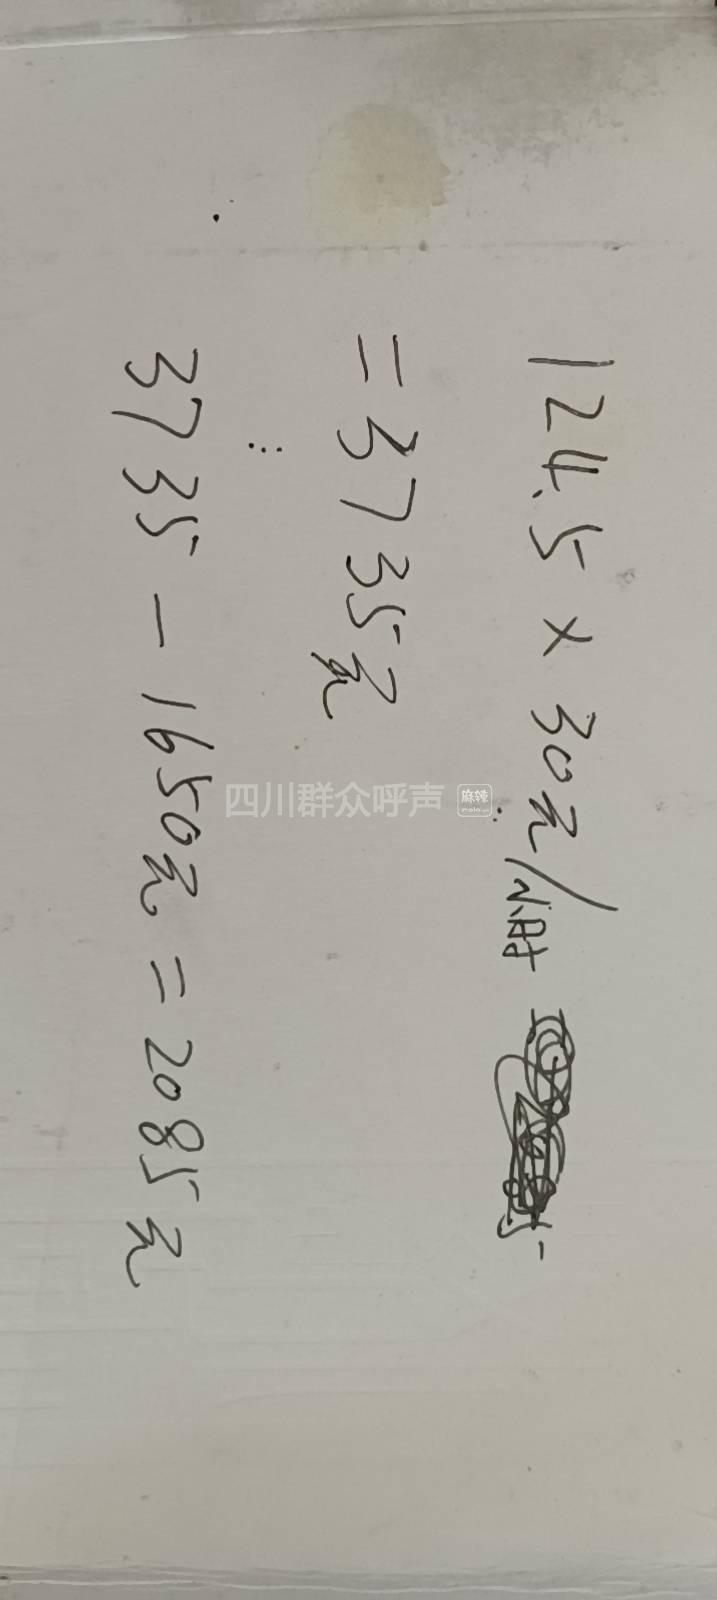 124.5 × 30元/小时
=3735元
3735-1650元=2085元
四川群众呼声 麻辣